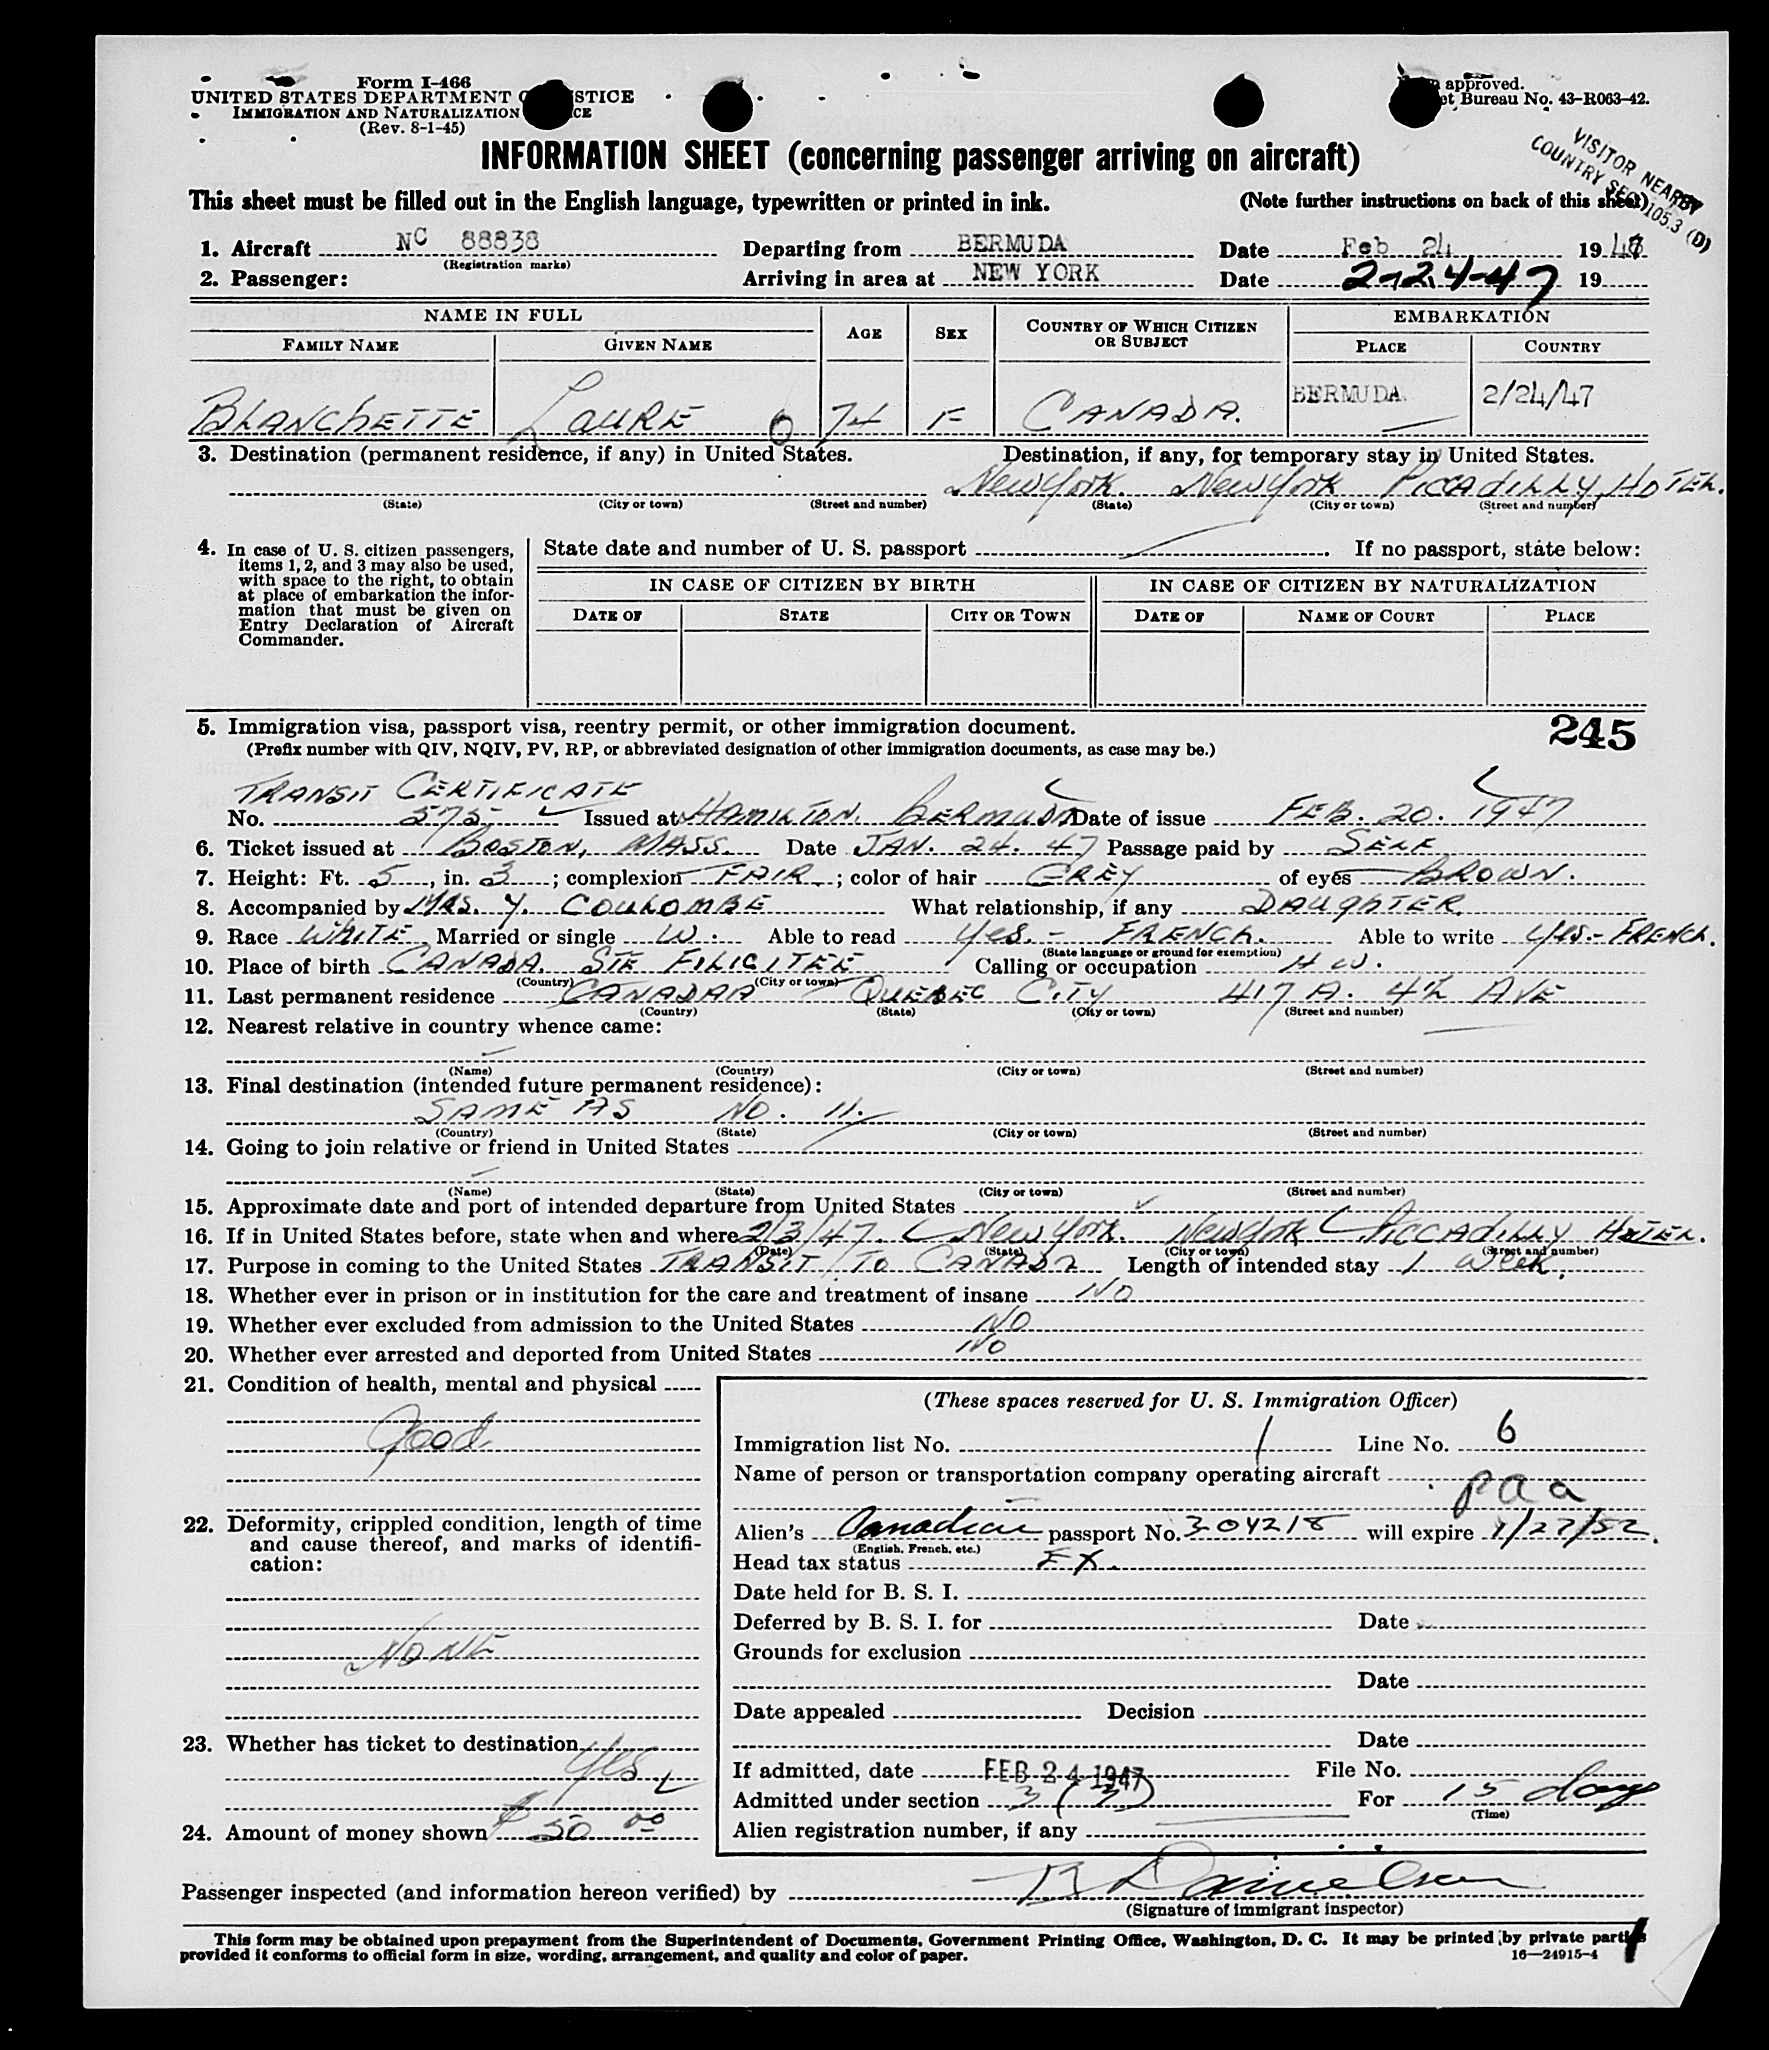 Form I-466
UNITED STATES DEPARTMENT STICE
IMMIGRATION AND NATURALIZATION CE
(Rev. 8-1-45)
approved.
et Bureau No. 43-R063-42.
VISITOR NEARBY
COUNTRY SEC 105.3 (D)
INFORMATION SHEET (concerning passenger arriving on aircraft)
This sheet must be filled out in the English language, typewritten or printed in ink. (Note further instructions on back of this sheet)
1. Aircraft NC 88838 Departing from BERMUDA Date Feb 24 1947
(Registration marks)
2. Passenger: Arriving in area at NEW YORK Date 2-24-47 19
NAME IN FULL AGE SEX COUNTRY OF WHICH CITIZEN OR SUBJECT EMBARKATION
FAMILY NAME GIVEN NAME PLACE COUNTRY
BLANCHETTE LAURE 74 F CANADA. BERMUDA 2/24/47
3. Destination (permanent residence, if any) in United States. Destination, if any, for temporary stay in United States.
New York. New York PICCADILLY HOTEL.
(State) (City or town) (Street and number) (State) (City or town) (Street and number)
4. In case of U. S. citizen passengers, items 1, 2, and 3 may also be used, with space to the right, to obtain at place of embarkation the information that must be given on Entry Declaration of Aircraft Commander.
State date and number of U. S. passport . If no passport, state below:
IN CASE OF CITIZEN BY BIRTH IN CASE OF CITIZEN BY NATURALIZATION
DATE OF STATE CITY OR TOWN DATE OF NAME OF COURT PLACE
5. Immigration visa, passport visa, reentry permit, or other immigration document. 245
(Prefix number with QIV, NQIV, PV, RP, or abbreviated designation of other immigration documents, as case may be.)
TRANSIT CERTIFICATE
No. 575 Issued at HAMILTON. BERMUDA Date of issue FEB. 20. 1947
6. Ticket issued at BOSTON, MASS. Date JAN. 24. 47 Passage paid by SELF
7. Height: Ft. 5, in. 3; complexion FAIR; color of hair GREY of eyes BROWN.
8. Accompanied by MRS. Y. COULOMBE What relationship, if any DAUGHTER.
9. Race WHITE Married or single W. Able to read Yes. - FRENCH. Able to write Yes.- FRENCH.
(State language or ground for exemption)
10. Place of birth CANADA. STE FILICITEE Calling or occupation H W.
(Country) (City or town)
11. Last permanent residence CANADAA QUEBEC CITY 417 A. 4th AVE
(Country) (State) (City or town) (Street and number)
12. Nearest relative in country whence came:
(Name) (Country) (City or town) (Street and number)
13. Final destination (intended future permanent residence):
SAME AS NO. 11.
(Country) (State) (City or town) (Street and number)
14. Going to join relative or friend in United States
(Name) (State) (City or town) (Street and number)
15. Approximate date and port of intended departure from United States
16. If in United States before, state when and where 2/3/47. New York. New York PICCADILLY HOTEL.
(Date) (State) (City or town) (Street and number)
17. Purpose in coming to the United States TRANSIT TO CANADA Length of intended stay 1 week.
18. Whether ever in prison or in institution for the care and treatment of insane NO
19. Whether ever excluded from admission to the United States NO
20. Whether ever arrested and deported from United States NO
21. Condition of health, mental and physical
Good
22. Deformity, crippled condition, length of time and cause thereof, and marks of identification:
NONE
23. Whether has ticket to destination
Yes
24. Amount of money shown $50 00
(These spaces reserved for U. S. Immigration Officer)
Immigration list No. 1 Line No. 6
Name of person or transportation company operating aircraft
paa
Alien's Canadian passport No. 304218 will expire 1/27/52.
(English, French, etc.)
Head tax status EX.
Date held for B. S. I.
Deferred by B. S. I. for Date
Grounds for exclusion
Date
Date appealed Decision
Date
If admitted, date FEB 24 1947 File No.
Admitted under section 3 (3) For 15 days
(Time)
Alien registration number, if any
Passenger inspected (and information hereon verified) by Danielson
(Signature of immigrant inspector)
This form may be obtained upon prepayment from the Superintendent of Documents, Government Printing Office, Washington, D. C. It may be printed by private parties
provided it conforms to official form in size, wording, arrangement, and quality and color of paper. 16—24915-4